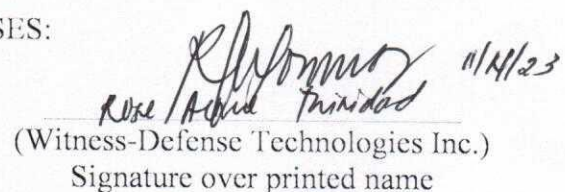 SES:
11/14/23
Rose Trinidad
(Witness-Defense Technologies Inc.)
Signature over printed name